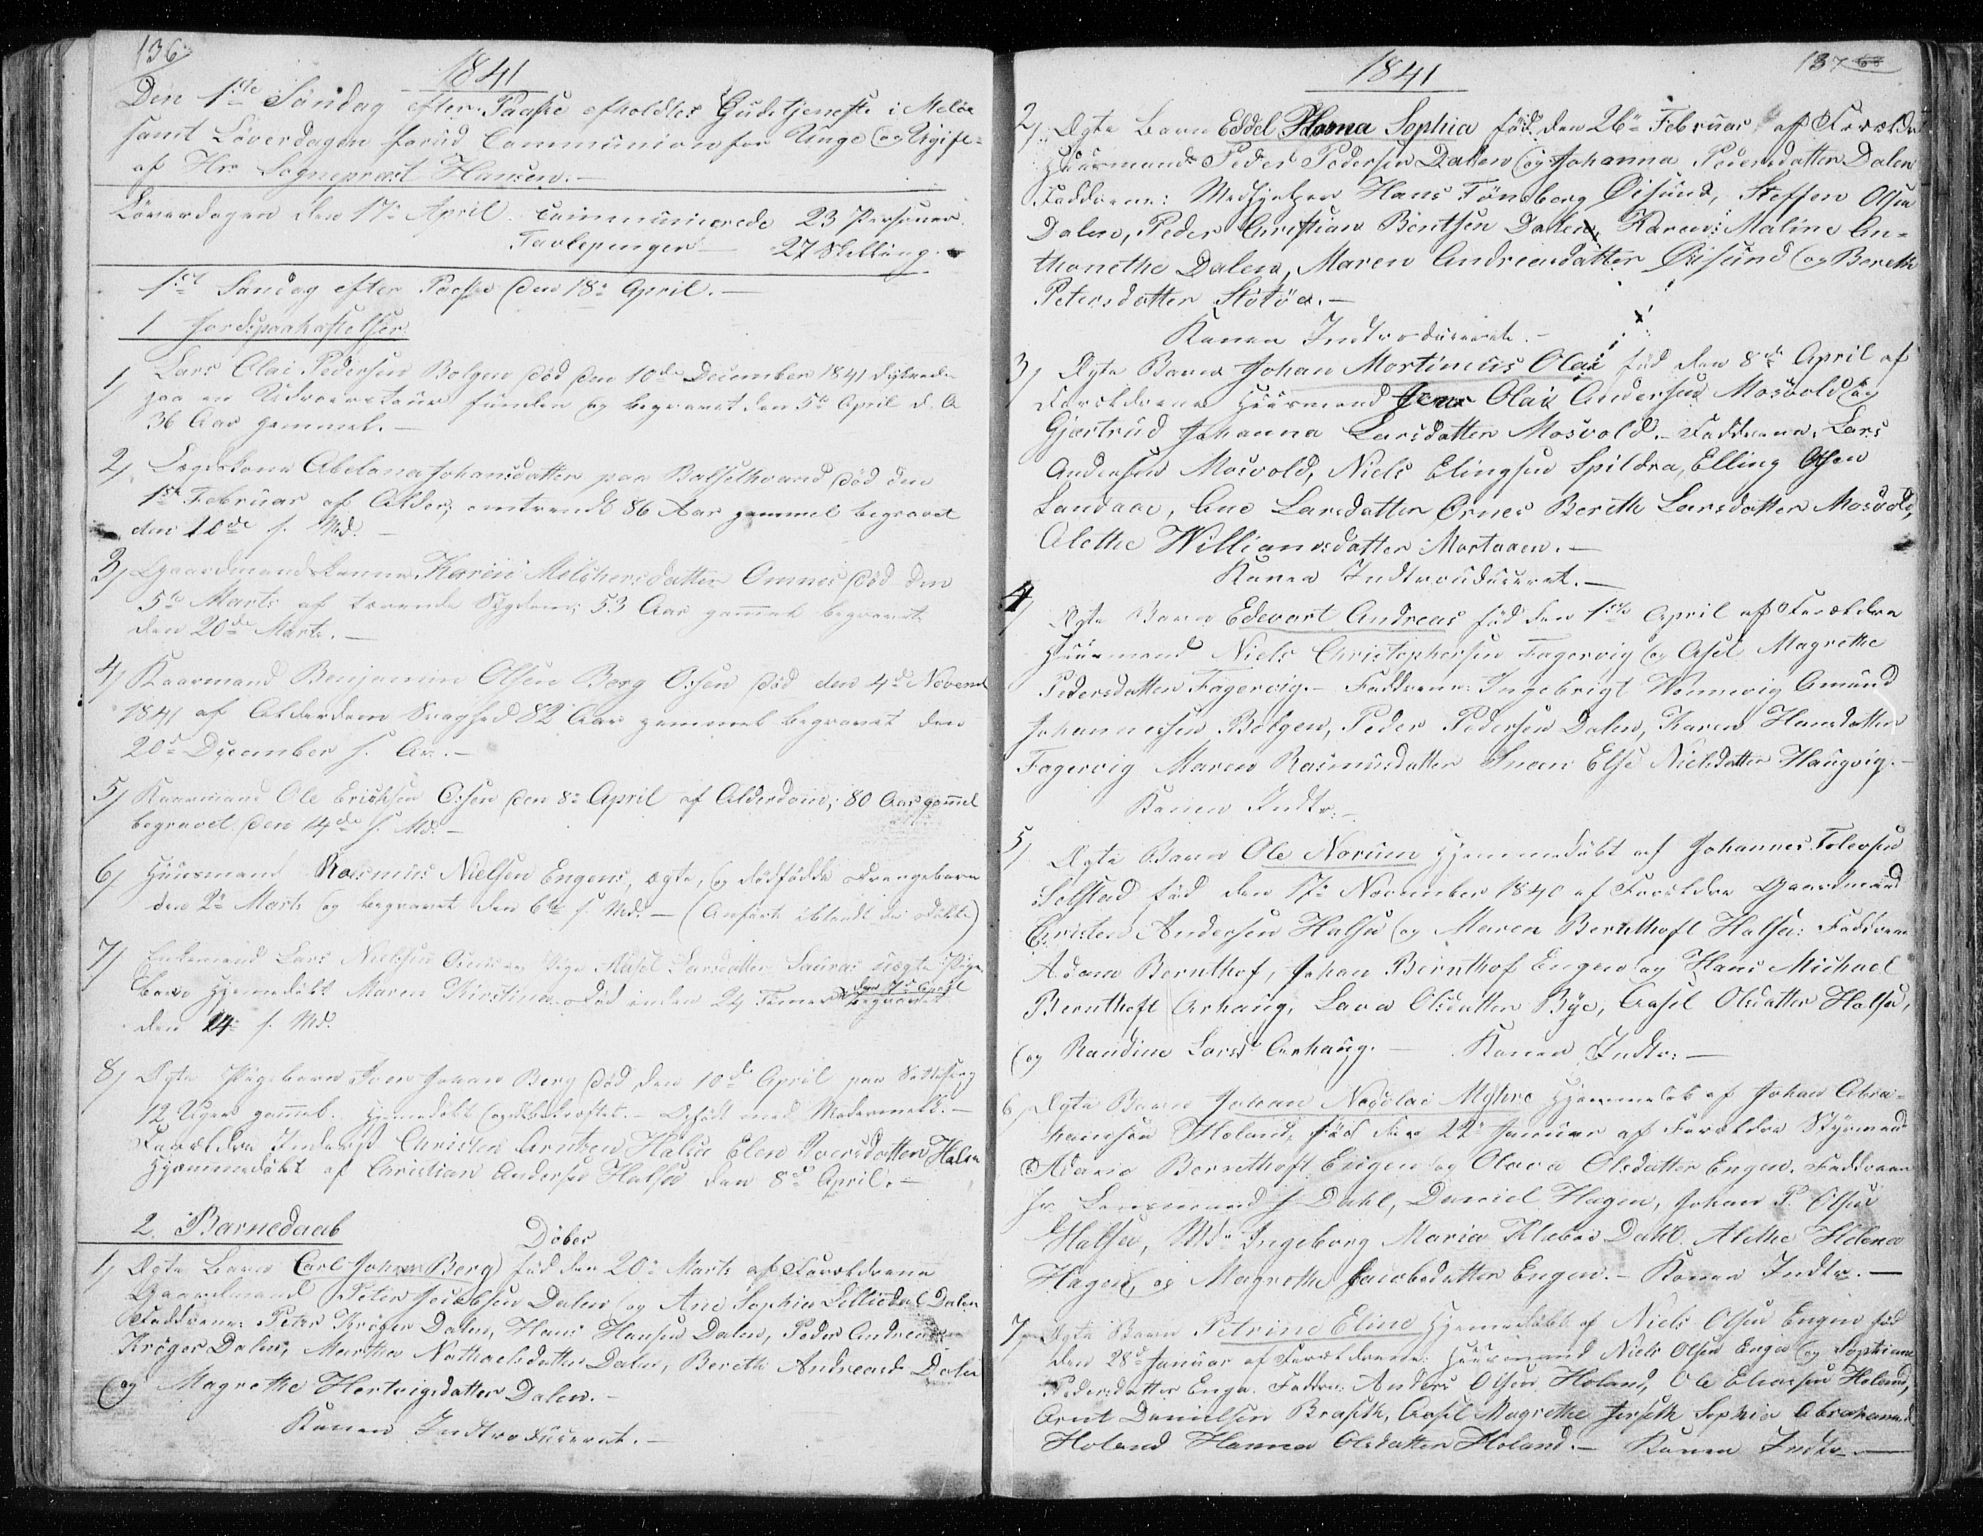 136
1841
Den 1ste Söndag efter Paaske afholdtes Gudstjeneste i Meløe
samt Löverdagen forud Communion for Unge og Ugift=
af Hr. Sognepræst Hansen.
Löverdagen den 17de April communicerede 23 Personer.
Tavlepenger — 27 Skilling.
1ste Söndag efter Paaske den 18de April.
1 Jordspaakastelser
1) Lars Olai Pedersen Bolgen död den 10de December 1841
paa en funden og begravet den 5te April d. A
36 Aar gammel.
2) Abelona Johansdatter paa död den
1ste Februar af Alder, omtrendt 86 Aar gammel begravet
den 10de s. Md.
3) Gaardmandskonne Karen Melchersdatter Ornes död den
5te Marts af tærende Sygdom; 53 Aar gammel begravet
den 20de Marts.
4) Kaarmand Benjamin Olsen Berg död den 4de Novembr
1841 af Alderdoms Svaghed 82 Aar gammel begravet den
20de December s. Aar.
5) Kaarmand Ole Erichsen den 8de April af Alderdom; 80 Aar gammel
begravet den 14de s. Md.
6) Huusmand Rasmus Nielsen Engens, ægte, og dödfödde Drengebarn
den 2de Marts og begravet den 6te s. Md. — (Anfört iblandt de döbte)
7) Enkemand Lars Nielsen og Pige Aasel Larsdatter uægte Pige
barn Hjemmedöbt Maren Kirstina Död 24 Timer den 7de April begravet
den 14 s. Md.
8) Ægte Pigebarn Johan Berg död den 10de April paa
12 Uger gammel. Hjemmedöbt og
Forældre Christen Arntzen Halsa Elen Roersdatter Halsa
Hjemmedöbt af Christian Andersen Halsa den 8de April.
2. Barnedaab
Döber
1) Ægte Barn Carl Johan Berg föd den 20de Marts af Forældrene
Gaardmand Peter Jacobsen Dalen og Ane Sophia Lilliedal Dalen
Faddrene: Peter Kröger Dalen, Hans Hansen Dalen, Peder Andreas
Kröger Dalen, Martha Nathaelsdatter Dalen, Bereth Andreasd. Dalen
og Magrethe Hertvigsdatter Dalen.
Konen Indtroduceret.
1841
137
2) Ægte Barn Eddel Hanna Sophia föd den 26de Februar af Forældre
Huusmand Peder Pedersen Dalen og Johanna Pedersdatter Dalen
Faddrene: Medhjelper Hans Tönsberg Öisund, Steffen Olsen
Dalen, Peder Christian Bentsen Dalen, Karen Maline An-
thonethe Dalen, Maren Andreasdatter Öisund og Bereth
Petersdatter Stötöe.
Konen Indtroduceret.
3) Ægte Barn Johan Mortinus Olai föd den 8de April af
Forældrene Huusmand Jens Olai Andersen Mosvold og
Gjærtrud Johanna Larsdatter Mosvold. Faddrene: Lars
Andersen Mosvold, Niels Elingsen Spildra, Elling Olsen
Sandaae, Ane Larsdatter Ornes Bereth Larsdatter Mosvold,
Alethe Williamsdatter Mortaaen.
Konen Indtrouduceret.
4) Ægte Barn Edevart Andreas föd den 1ste April af Forældre
Huusmand Niels Christophersen Fagervig og Asel Magrethe
Pedersdatter Fagervig. Faddrene: Ingebrigt Vonnevig Amund
Johannesen Bolgen, Peder Pedersen Dalen, Karen Hansdatter
Fagervig Maren Rasmusdatter Else Nielsdatter Haugvig.
Konen Indtr.
5) Ægte Barn Ole Norum Hjemmedöbt af Johannes Tolevsen
Selstad föd den 17de November 1840 af Forældre Gaardmand
Christen Andersen Halsa og Maren Bernthoft Halsa: Faddrene
Adam Bernthof, Johan Bernthof Engen og Hans Michael
Bernthoft Arhaug, Lava Olsdatter Bye, Aasel Olsdatter Halsa,
og Randine Larsd. Aarhaug. — Konen Indtr. —
6) Ægte Barn Johan Nicolai Myhre Hjemmedöb af Johan Abra-
hamsen Holand, föd den 22de Januar af Forældre Styrmand
Adam Bernthoft Engen og Olava Olsdatter Engen. Faddrene
Hr. Lensmand J Dahl, Daniel Hagen, Johan P. Olsen
Halsa, Md. Ingeborg Maria Klæboe Dahl. Alethe Helena
Hagen, og Magrethe Jacobsdatter Engen. — Konen Indtr. —
7) Ægte Barn Petrine Eline Hjemmedöbt af Niels Olsen Engen föd
den 28de Januar af Forældrene: Huusmand Niels Olsen Engen og Sophianna
Pedersdatter Enge. Faddre: Anders Olsen Holand, Ole Eliassen Holand,
Arnt Danielsen Braseth, Aasel Magrethe Jerseth Sophia Abrahamsd.
Holand Hanna Olsdatter Holand. — Konen Indtr —